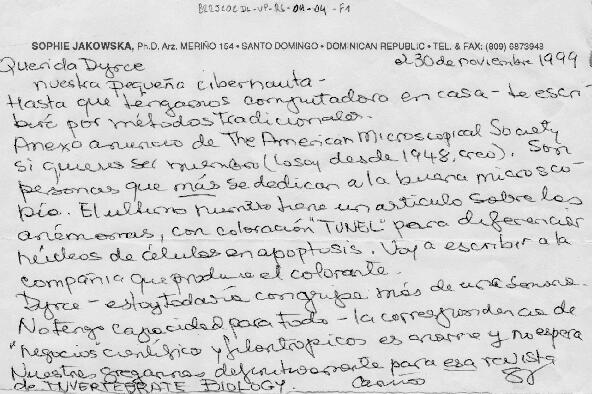 BRRJCOCDL-VP-RS-04-04-F1
SOPHIE JAKOWSKA, Ph.D. Arz. MERIÑO 154 • SANTO DOMINGO • DOMINICAN REPUBLIC • TEL. & FAX: (809) 6873948
Querida Dyrce el 30 de noviembre 1999
nuestra pequeña cibernauta -
Hasta que tengamos computadora en casa - te escri-
biré por métodos tradicionales.
Anexo anuncio de The American Microscopical Society
si quieres ser miembro (lo soy desde 1948, creo). Son
personas que más se dedican a la buena microsco-
pía. El ultimo numero tiene un articulo sobre las
anémonas, con coloración "TUNEL" para diferenciar
núcleos de células en apoptosis. Voy a escribir a la
compañia que produce el colorante.
Dyrce - estoy todavía con gripe más de una semana.
No tengo capacidad para todo - la correspondencia de
"negocios" científico y filantropicos es enorme y no espera
Nuestras gregarinas definitivamente para esa revista
de INVERTEBRATE BIOLOGY. Cariños